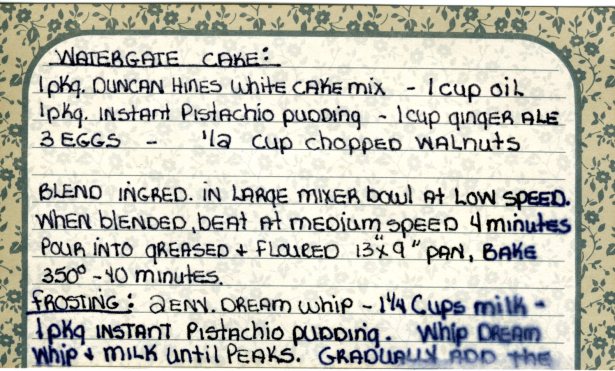 WATERGATE CAKE:
1pkg. DUNCAN HINES White CAKE mix - 1 cup oil
1pkg. INSTANT Pistachio pudding - 1cup ginger ALE
3 EGGS - 1/2 cup chopped WALNUTS
BLEND INGRED. IN LARGE MIXER bowl At LOW SPEED.
WHEN blENDED, bEAt At mEDium spEED 4 minutes
POUR INTO GREASED + FLOURED 13"x9" PAN, BAKE
350° - 40 minutes.
FROSTING: 2 ENV. DREAM whip - 1 1/4 Cups milk -
1pkg INSTANT Pistachio pudding. Whip DREAM
Whip + MILK until PEAKS. GRADUALLY ADD the